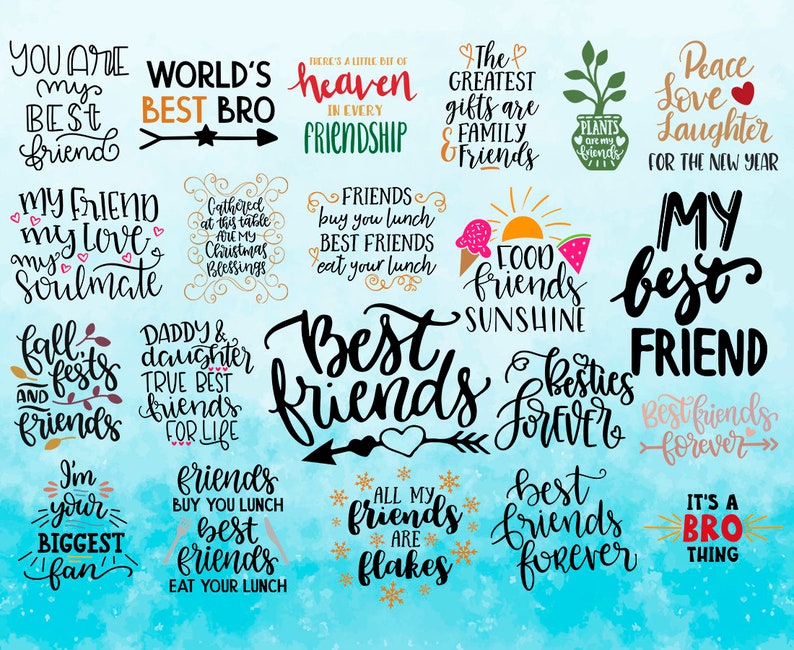 YOU ARE
my
BEST
friend
WORLD'S
BEST BRO
THERE'S A LITTLE BIT OF
heaven
IN EVERY
FRIENDSHIP
The
GREATEST
gifts are
& FAMILY
Friends
PLANTS
are my
friends
Peace
Love
Laughter
FOR THE NEW YEAR
MY FRIEND
my LOVE
my
Soulmate
Gathered
at this table
ARE MY
Christmas
Blessings
FRIENDS
buy you lunch
BEST FRIENDS
eat your lunch
FOOD
friends
SUNSHINE
MY
best
FRIEND
fall,
fests
AND
friends
DADDY &
daughter
TRUE BEST
friends
FOR LIFE
Best
friends
Besties
FOREVER
Best friends
forever
I'm
your
BIGGEST
fan
friends
BUY YOU LUNCH
best
friends
EAT YOUR LUNCH
ALL MY
friends
ARE
flakes
best
friends
forever
IT'S A
BRO
THING